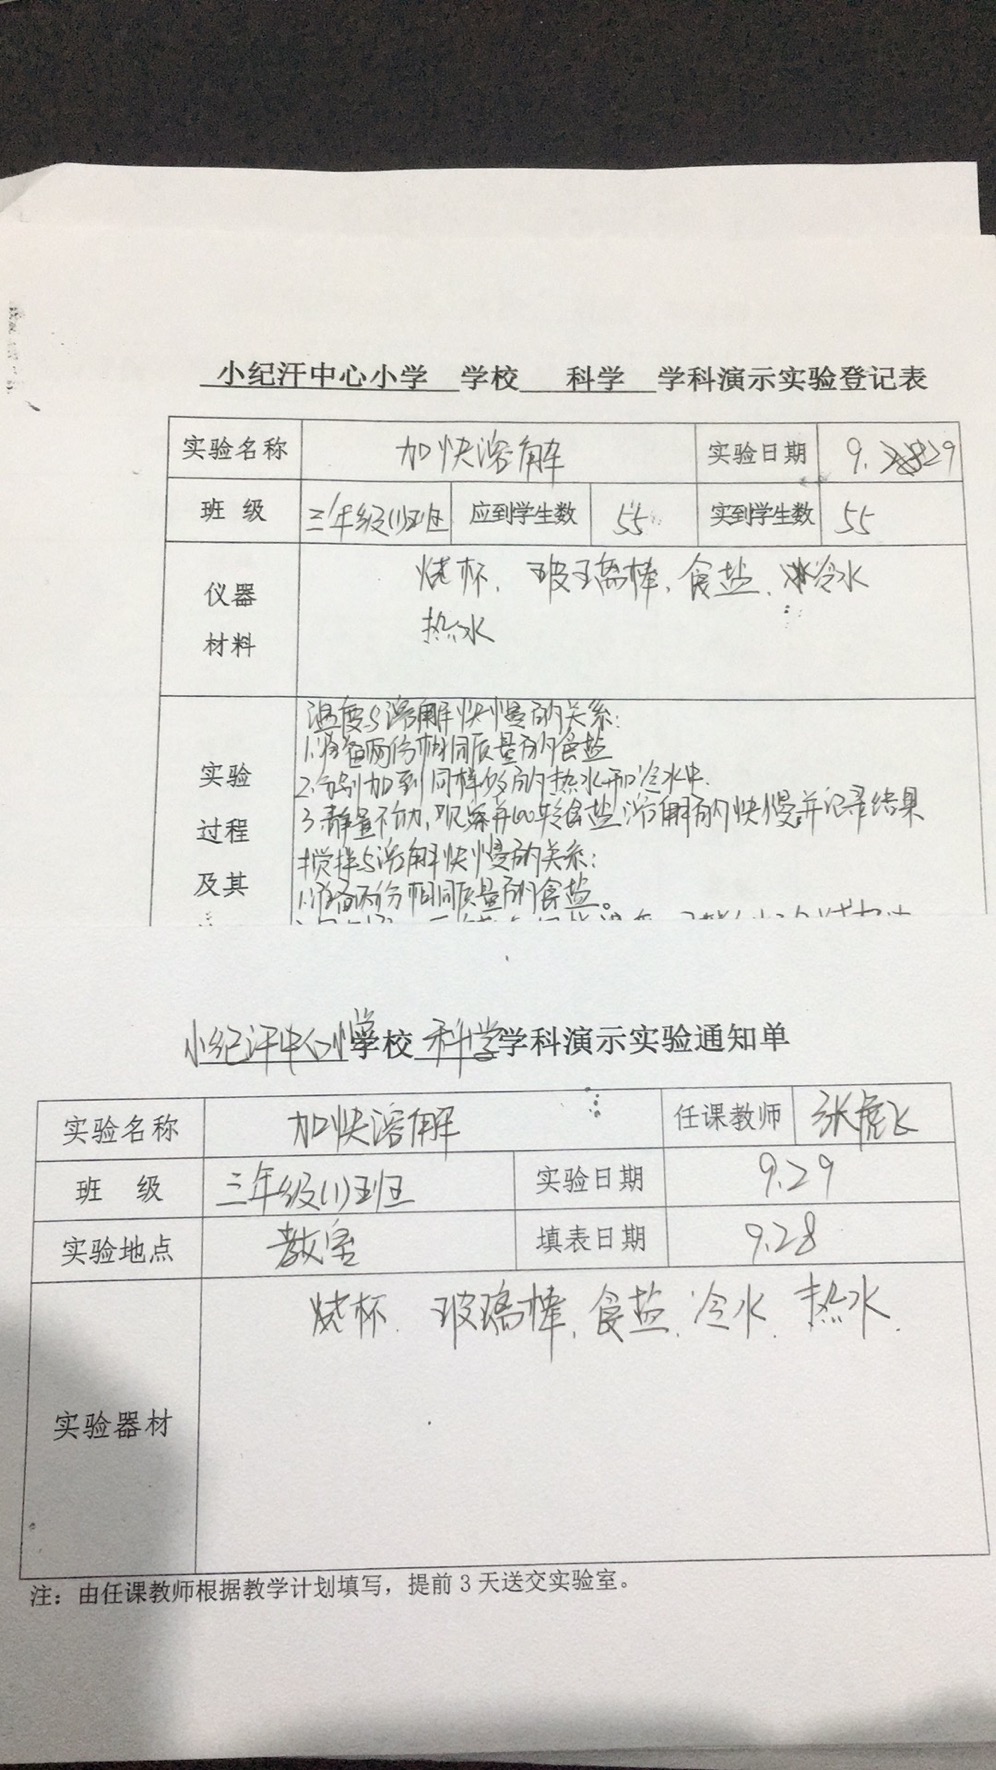 小纪汗中心小学 学校 科学 学科演示实验登记表
实验名称 加快溶解 实验日期 9.29
班级 三年级(1)班 应到学生数 55 实到学生数 55
仪器 烧杯、玻璃棒、食盐、冷水
材料 热水
实验 温度与溶解快慢的关系：
1.准备两份相同质量的食盐
2.分别加到同样多的热水和冷水中.
过程 3.静置不动，观察并比较食盐溶解的快慢并记录结果
及其 搅拌与溶解快慢的关系：
1.准备两份相同质量的食盐。
小纪汗中心小学学校 科学学科演示实验通知单
实验名称 加快溶解 任课教师 张虎飞
班级 三年级(1)班 实验日期 9.29
实验地点 教室 填表日期 9.28
实验器材 烧杯、玻璃棒、食盐、冷水、热水.
注：由任课教师根据教学计划填写，提前3天送交实验室。